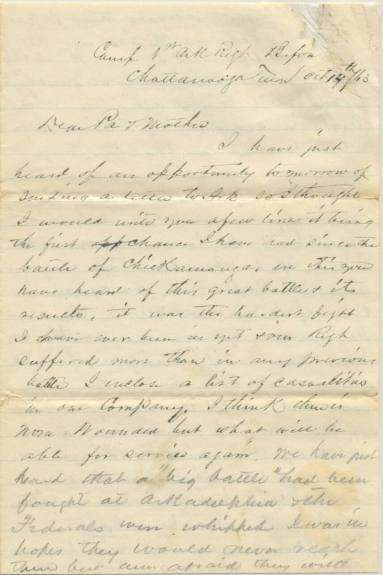 Camp 1st Ark Regt Before
Chattanooga Tenn Oct 14th/63
Dear Pa & Mother
I have just
heard of an opportunity tomorrow of
sending a letter to Ark so I thought
I would write you a few lines it being
the first opp chance I have had since the
battle of Chickamauga, in this you
have heard of this great battle & its
results, it was the hardest fight
I have ever been in yet & our Regt
suffered more than in any previous
battle I inclose a list of casualities
in our Company. I think there is
none Wounded but what will be
able for service again. We have just
heard that a "big battle" had been
fought at Arkadelphia & the
Federals were whipped I was in
hopes they would never reach
there but am afraid they will